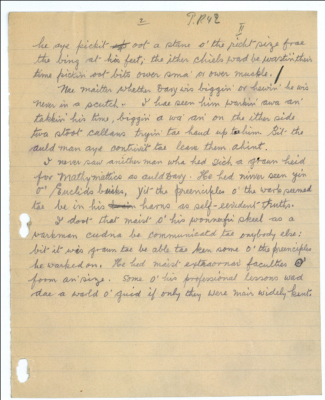 2
T.P. 42
he aye pickit oot a stane o' the richt size frae
the bing at his feet, the ither chiels wad be wastin their
time pickin oot bits ower sma' or ower muckle.
Nae maitter whether Gavy wis biggin or hewin' he wis
never in a scutch. I hae seen him workin awa an'
takkin his time, biggin a wa' an' on the ither side
two stoot callans tryin tae haud up tae him. Yit the
auld man aye contrivit tae leave them ahint.
I never saw anither man who hed sich a graun heid
for Mathymettics as auld Gavy. He hed never seen yin
o' Euclids buiks, yit the preenciples o' the wark seemed
tae be in his harns as self-evident truths.
I doot that maist o' his vonnrafu skeel as a
warkman cudna be communicatd tae onybody else:
bit it wus graun tae be able tae ken some o' the preenciples
he warked on. He hed maist extraornar faculties o'
form an' size. Some o' his professional lessons wad
dae a world o' guid if only they were mair widely kent.